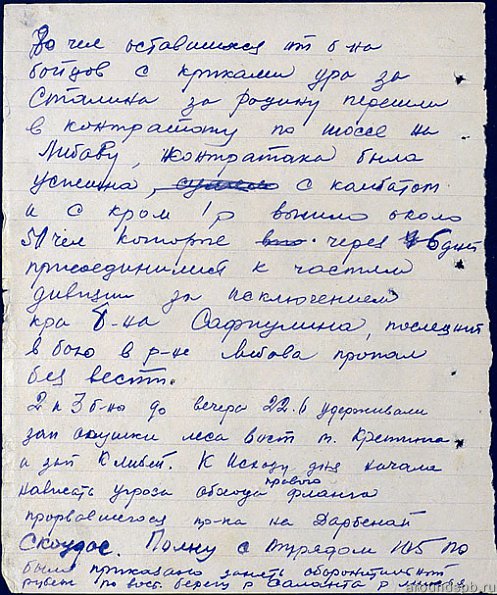 80 чел оставшихся от б-на
бойцов с криками ура за
Сталина за родину перешли
в контратаку по шоссе на
Либаву, контратака была
успешна, с комбатом
и с кром 1 р вышло около
50 чел которые через 6 дней
присоединились к частям
дивизии за исключением
кра б-на Сафиулина, последний
в бою в р-не Либава пропал
без вести.
2 и 3 б-но до вечера 22.6 удерживали
зап опушки леса вост м. Кретинга
а зат К. К исходу дня начала
нависать угроза обхода правого фланга
прорвавшегося пр-ка на Дарбенай
Скоудас. Полку с отрядом ПО
было приказано занять оборонительный
рубеж по вост. берегу р Саланта р
aroundspb.ru